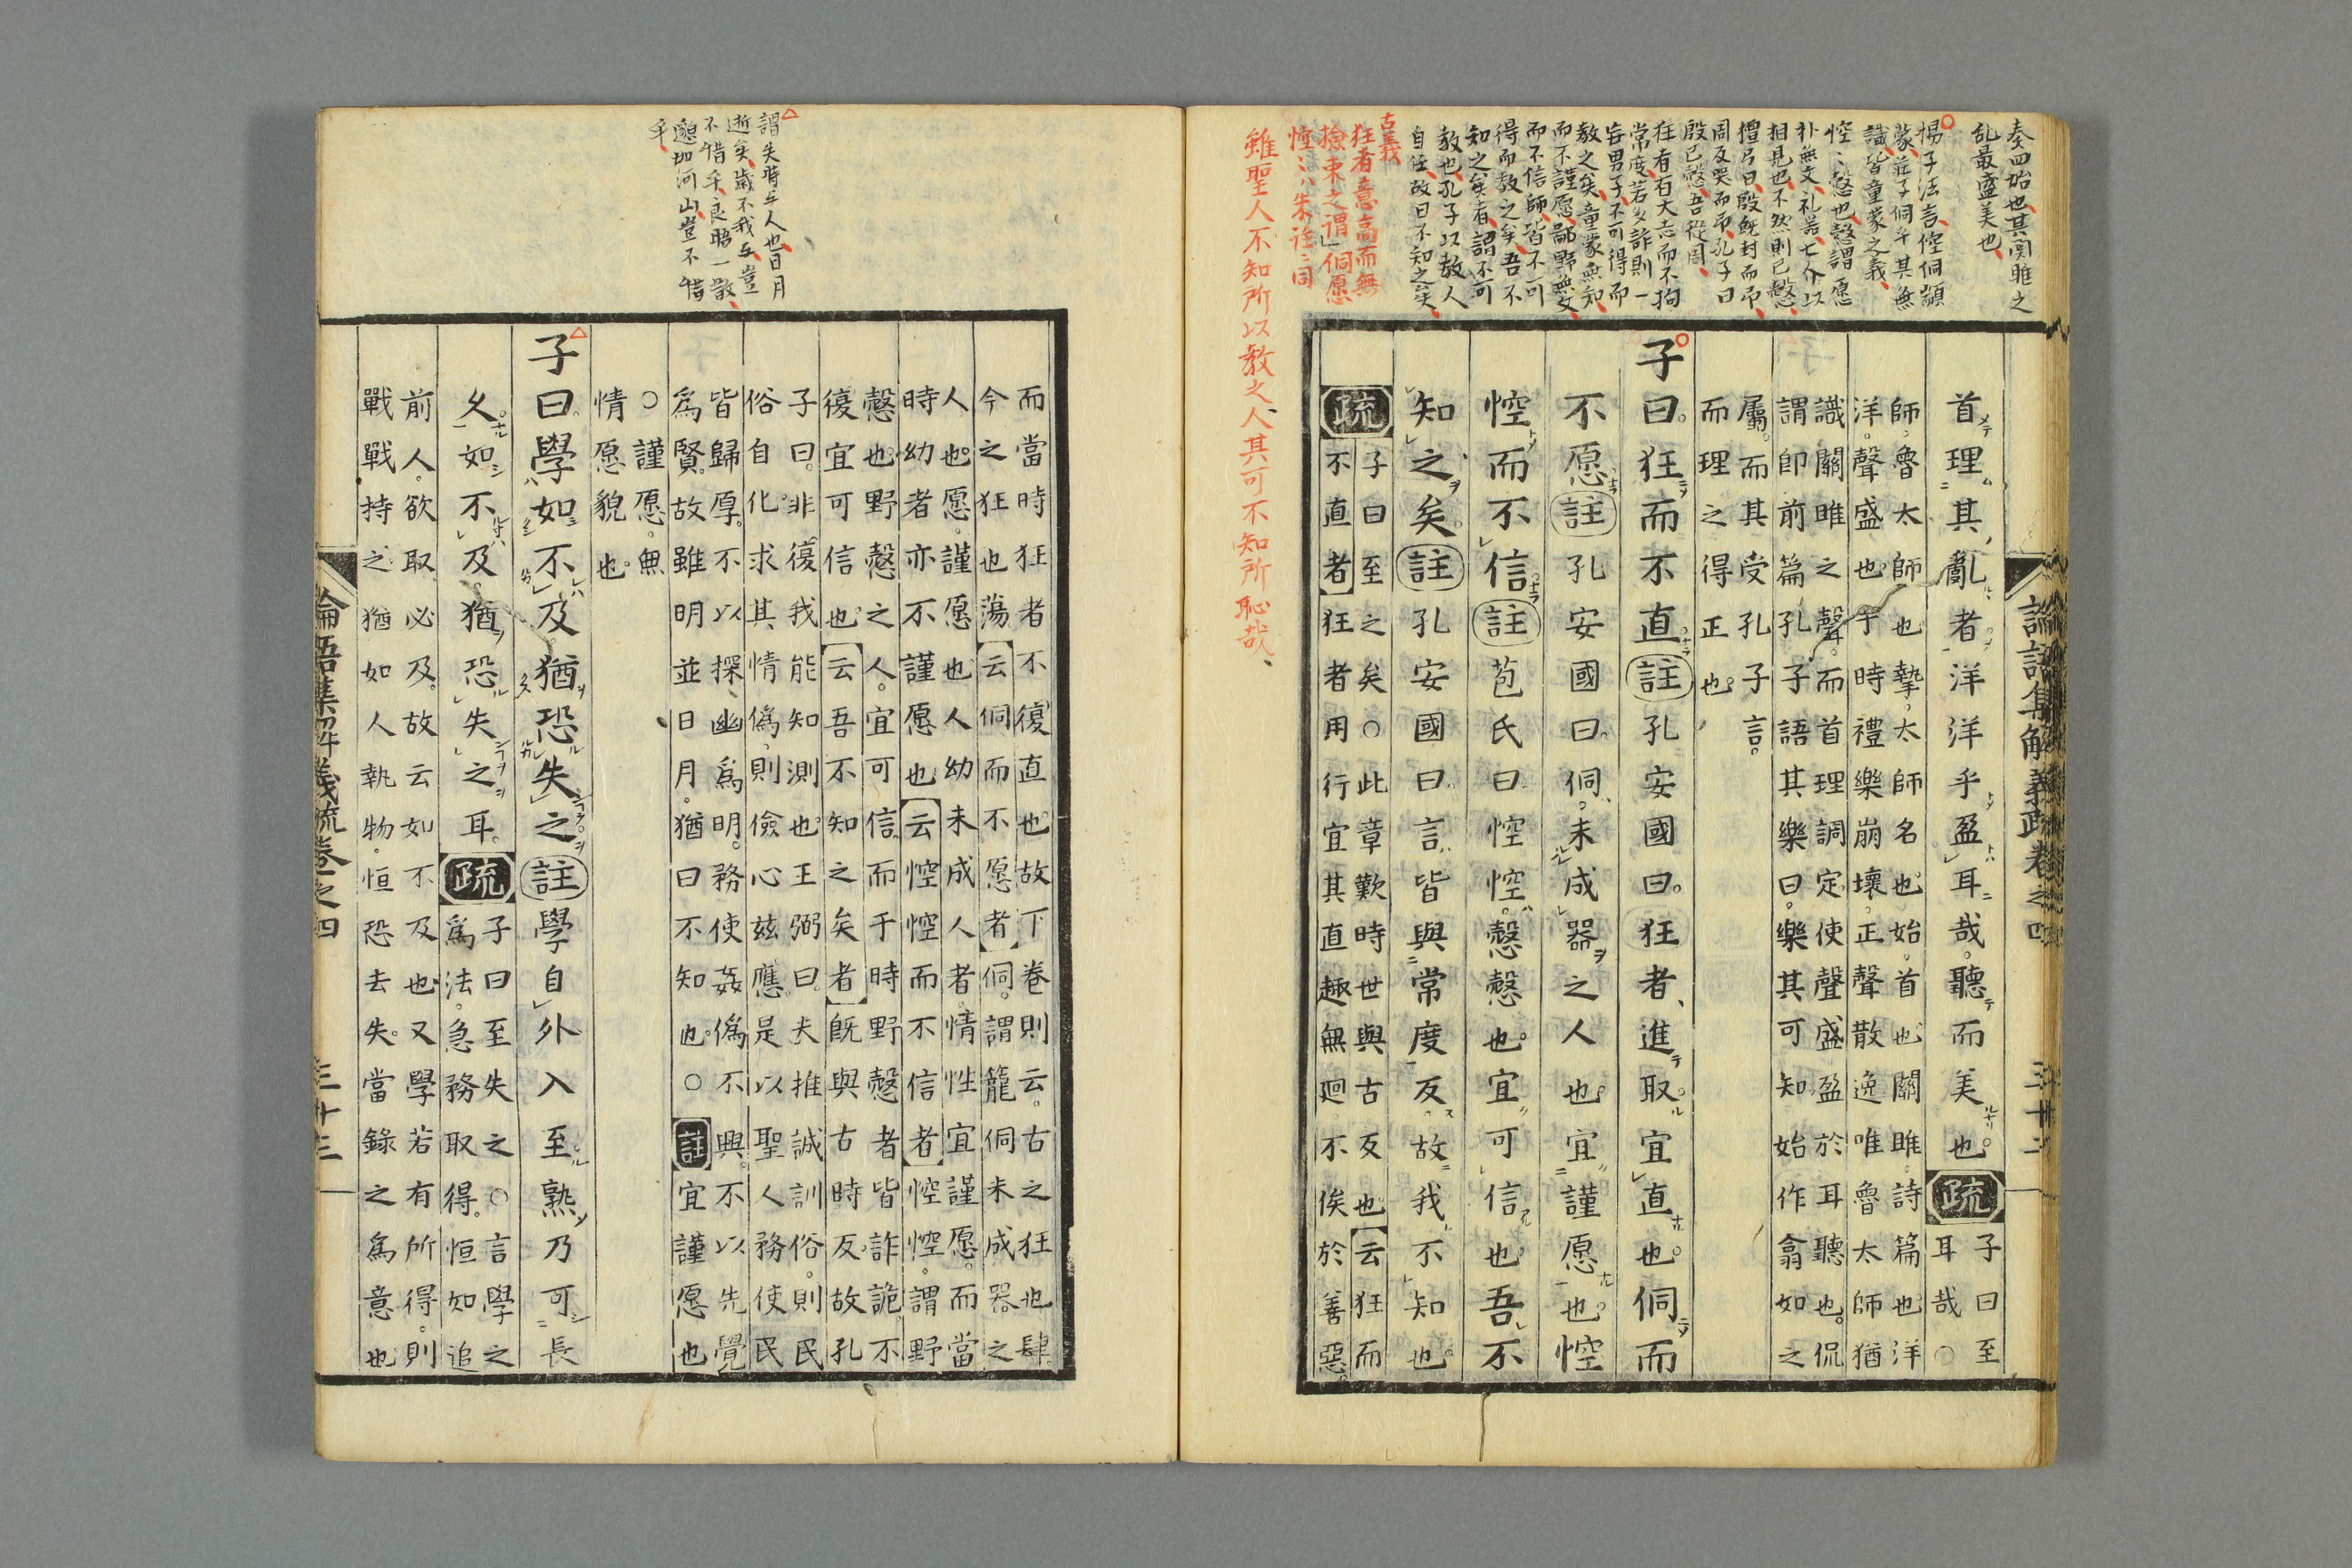 奏四始也其関雎之
乱最盛美也
揚子法言倥侗顓
蒙荘子侗乎其無
識皆童蒙之義
悾〻慤也慤謂愿
朴無文礼器七介以
相見也不然則已慤
檀弓曰殷既封而吊
周反哭而吊孔子曰
殷已慤吾從周
狂者有大志而不拘
常度若多詐則一
妄男子不可得而
教之矣童蒙無知
而不謹愿鄙野無文
而不信師皆不可
得而教之矣吾不
知之矣者謂不可
教也孔子以教人
自任故曰不知之矣
古義
狂者意高而無
撿束之謂侗愿
悾〻ハ朱註ニ同
雖聖人不知所以教之人其可不知所恥哉
論語集解義疏卷之四
首理其亂者洋洋乎盈耳哉聽而美也疏子曰至
耳哉○
師魯太師也摯太師名也始首也關雎詩篇也洋
洋聲盛也于時禮樂崩壞正聲散逸唯魯太師猶
識關雎之聲而首理調定使聲盛盈於耳聽也侃
謂卽前篇孔子語其樂曰樂其可知始作翕如之
屬而其受孔子言
而理之得正也
子曰狂而不直註孔安國曰狂者進取宜直也侗而
不愿註孔安國曰侗未成器之人也宜謹愿也悾
悾而不信註苞氏曰悾悾慤慤也宜可信也吾不
知之矣註孔安國曰言皆與常度反故我不知也
疏子曰至之矣○此章歎時世與古反也云狂而
不直者狂者用行宜其直趣無廻不俟於善惡
而當時狂者不復直也故下卷則云古之狂也肆
今之狂也蕩云侗而不愿者侗謂籠侗未成器之
人也愿謹愿也人幼未成人者情性宜謹愿而當
時幼者亦不謹愿也云悾悾而不信者悾悾謂野
慤也野慤之人宜可信而于時野慤者皆詐詭不
復宜可信也云吾不知之矣者既與古時反故孔
子曰非復我能知測也王弼曰夫推誠訓俗則民
俗自化求其情僞則儉心茲應是以聖人務使民
皆歸厚不以探幽爲明務使姦僞不興不以先覺
爲賢故雖明並日月猶曰不知也○註宜謹愿也
○謹愿無
情愿貌也
子曰學如不及猶恐失之註學自外入至熟乃可長
久如不及猶恐失之耳疏子曰至失之○言學之
爲法急務取得恒知追
前人欲取必及故云如不及也又學若有所得則
戰戰持之猶如人執物恒恐去失當錄之爲意也
論語集解義疏卷之四
三十三
謂失時乎人也日月
逝矣歳不我与豈
不惜乎良晤一散
邈如河山豈不惜
乎